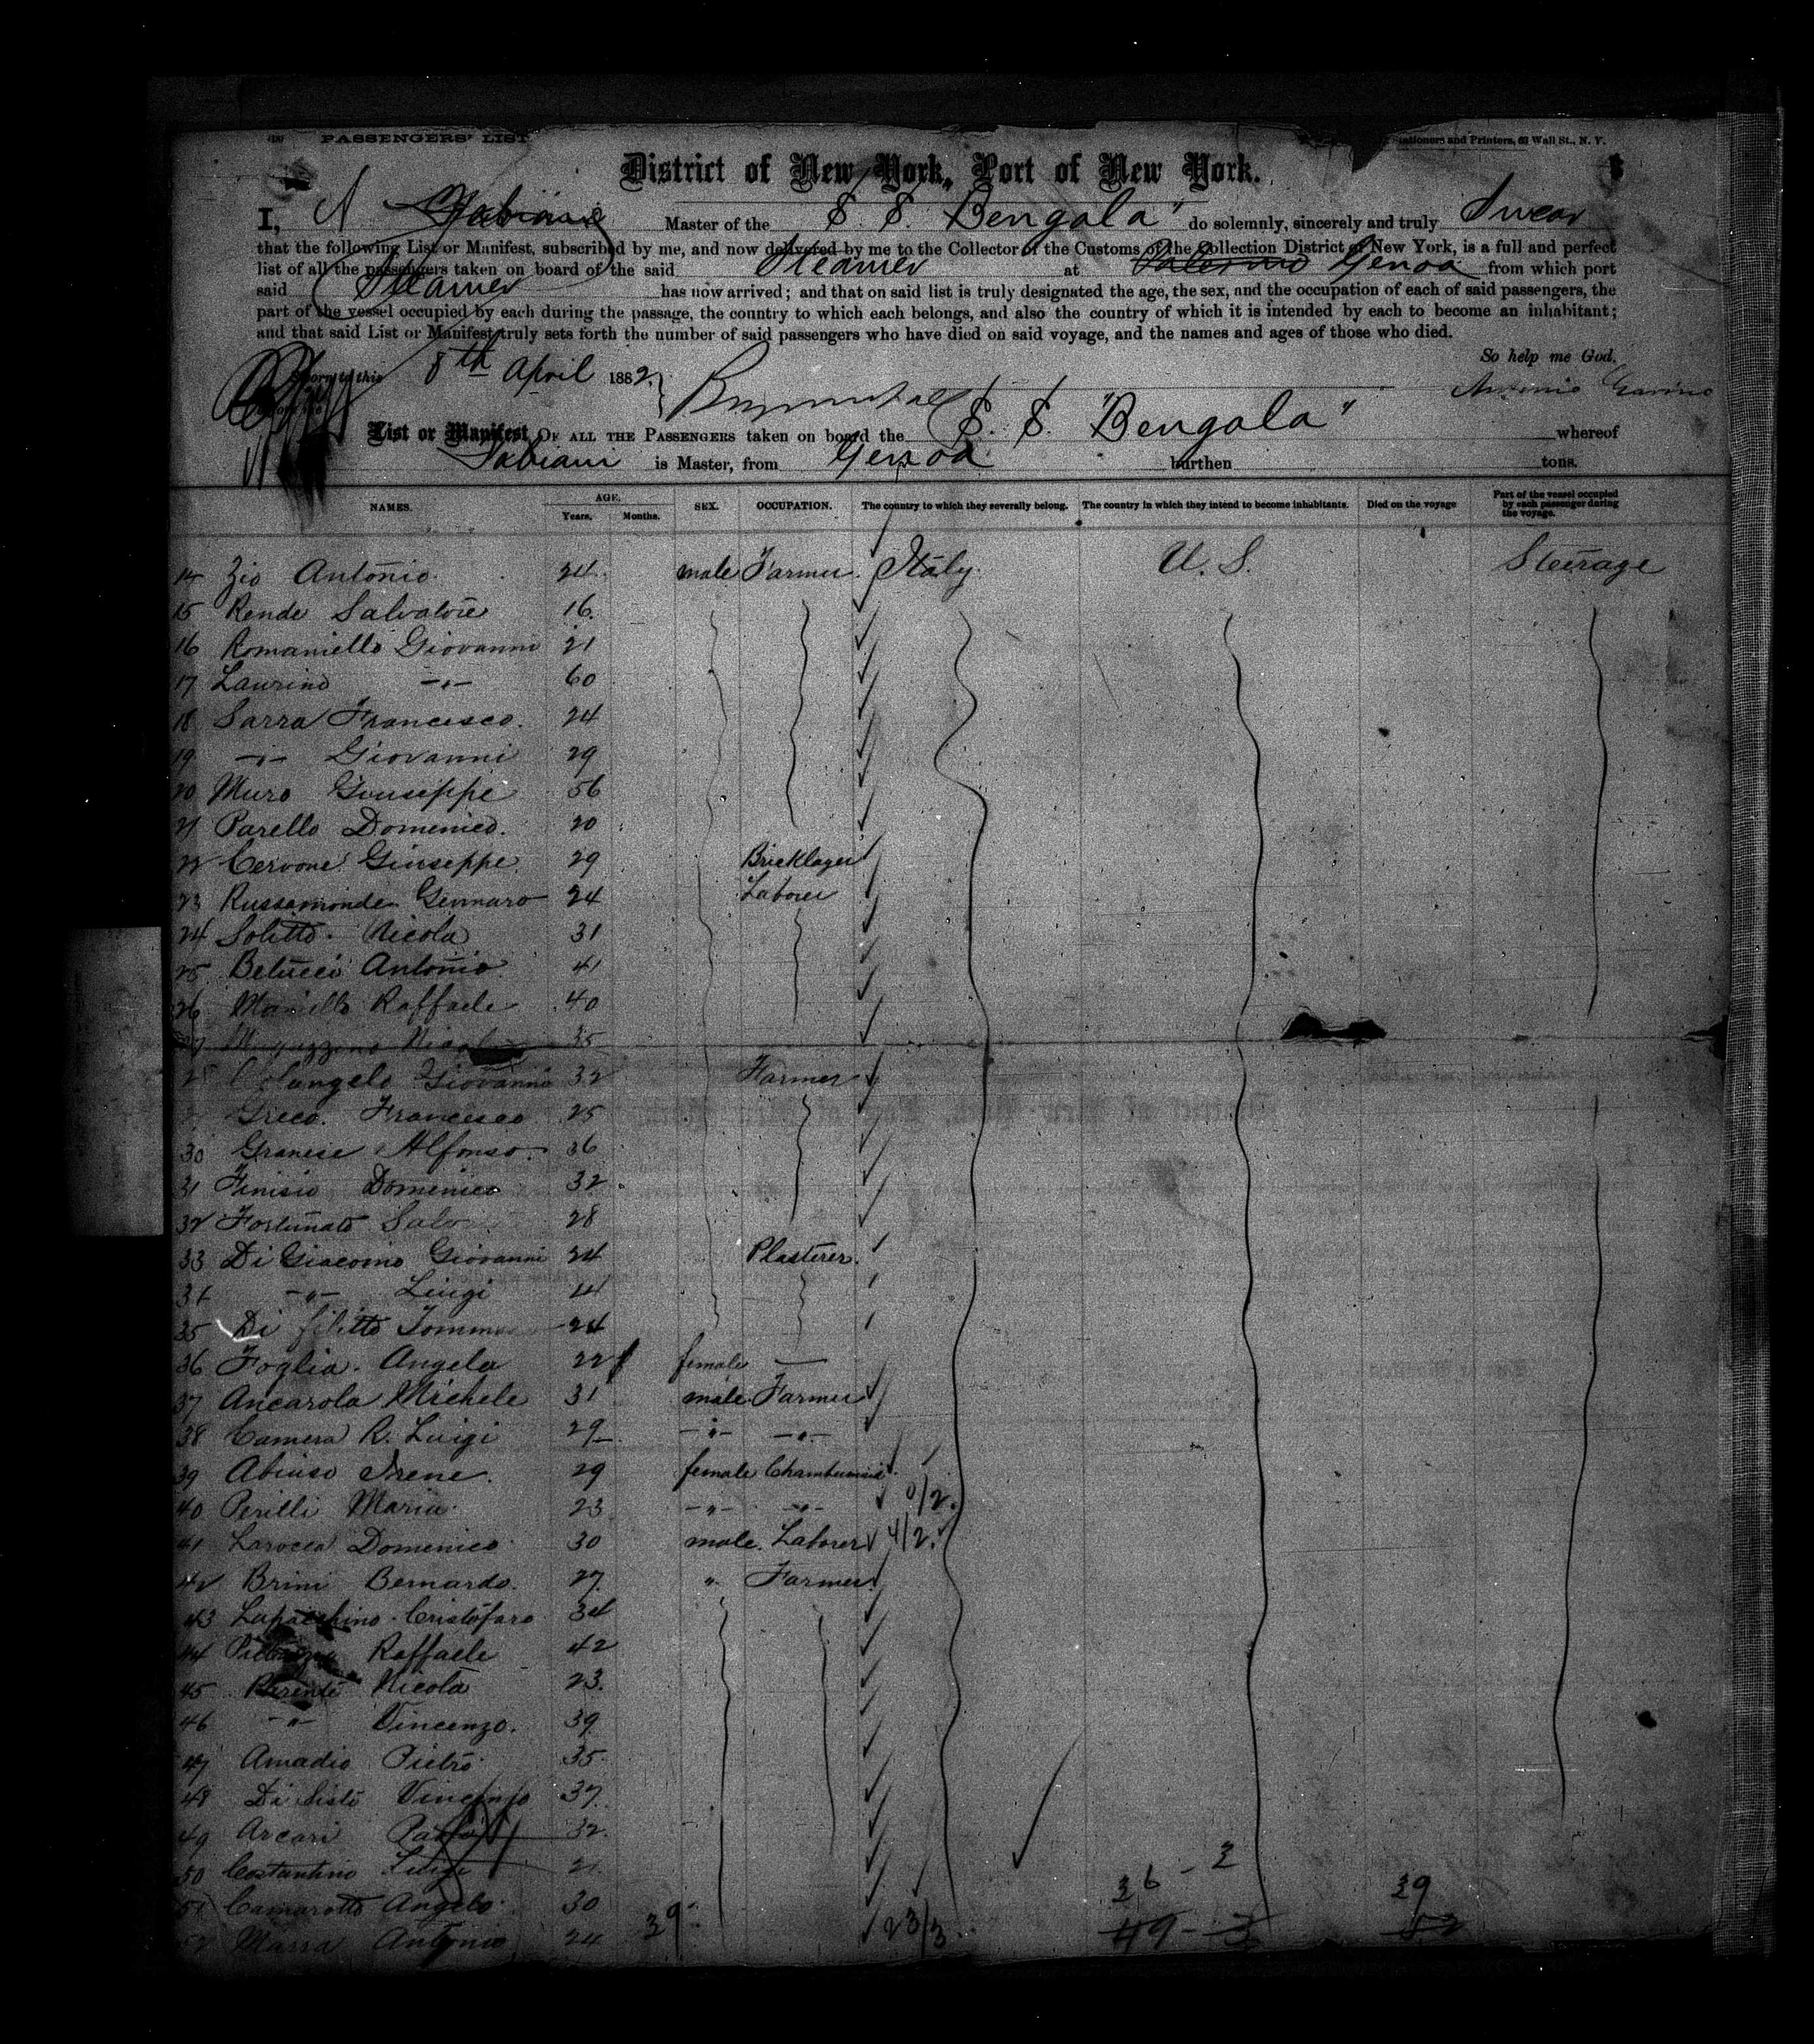 PASSENGERS' LIST
Stationers and Printers, 63 Wall St., N. Y.
District of New York, Port of New York.
I, A Fabiani Master of the S. S. Bengala" do solemnly, sincerely and truly Swear
that the following List or Manifest, subscribed by me, and now delivered by me to the Collector of the Customs of the Collection District of New York, is a full and perfect
list of all the passengers taken on board of the said Steamer at Palermo Genoa from which port
said Steamer has now arrived; and that on said list is truly designated the age, the sex, and the occupation of each of said passengers, the
part of the vessel occupied by each during the passage, the country to which each belongs, and also the country of which it is intended by each to become an inhabitant;
and that said List or Manifest truly sets forth the number of said passengers who have died on said voyage, and the names and ages of those who died.
So help me God.
Sworn to this 8th April 1882. Antonio
List or Manifest OF ALL THE PASSENGERS taken on board the S. S. "Bengala" whereof
Fabiani is Master, from Genoa burthen tons.
NAMES. AGE. Years. Months. SEX. OCCUPATION. The country to which they severally belong. The country in which they intend to become inhabitants. Died on the voyage Part of the vessel occupied by each passenger during the voyage.
14 Zio Antonio 24 male Farmer. Italy. U. S. Steerage
15 Rende Salvatore 16.
16 Romaniello Giovanni 21
17 Laurino -"- 60
18 Sarra Francesco. 24
19 -"- Giovanni 29
20 Muro Giuseppe 56
21 Parello Domenico. 20
22 Cervone Giuseppe 29 Bricklayer
23 Russamonde Gennaro 24 Laborer
24 Solitto Nicola 31
25 Belucci Antonio 41
26 Raffaele 40
27 Nicol 35
28 Colangelo Giovanni 32 Farmer
Greco. Francesco 25
30 Granese Alfonso. 36
31 Finisio Domenico 32
32 Fortunato Salv 28
33 Di Giacomo Giovanni 24 Plasterer.
34 -"- Luigi 24
35 Di filitto Tommaso 24
36 Foglia. Angela 22 female —
37 Ancarola Michele 31 male Farmer
38 Camera R. Luigi 29 -"- -"-
39 Abiuso Irene. 29 female Chambermaid
40 Perilli Maria 23 -"- -"- 0/2.
41 Larocca Domenico 30 male. Laborer 4/2.
42 Brini Bernardo. 27 " Farmer
43 Cristofaro 34
44 Raffaele 42
45 Nicola 23.
46 -"- Vincenzo. 39
47 Amadio Pietro 35
48 Di Sisto Vincenzo 37.
49 Arcari 32
50 Costantino Luigi 21
51 Camarotto Angelo 30
52 Massa Antonio 24
39
23/3
36 - 3 39
49 - 3 52